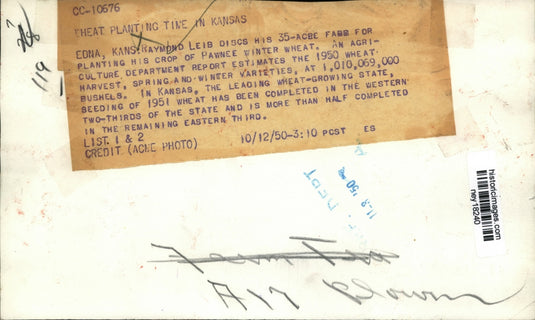 CC-10676
WHEAT PLANTING TIME IN KANSAS
EDNA, KANS: RAYMOND LEIB DISCS HIS 35-ACRE FARM FOR
PLANTING HIS CROP OF PAWNEE WINTER WHEAT. AN AGRI-
CULTURE DEPARTMENT REPORT ESTIMATES THE 1950 WHEAT
HARVEST, SPRING AND WINTER VARIETIES, AT 1,010,069,000
BUSHELS. IN KANSAS, THE LEADING WHEAT-GROWING STATE,
SEEDING OF 1951 WHEAT HAS BEEN COMPLETED IN THE WESTERN
TWO-THIRDS OF THE STATE AND IS MORE THAN HALF COMPLETED
IN THE REMAINING EASTERN THIRD.
LIST 1 & 2
CREDIT (ACME PHOTO) 10/12/50-3:10 PCST ES
119
DEPT
historicimages.com
ney18240
A17 Plown